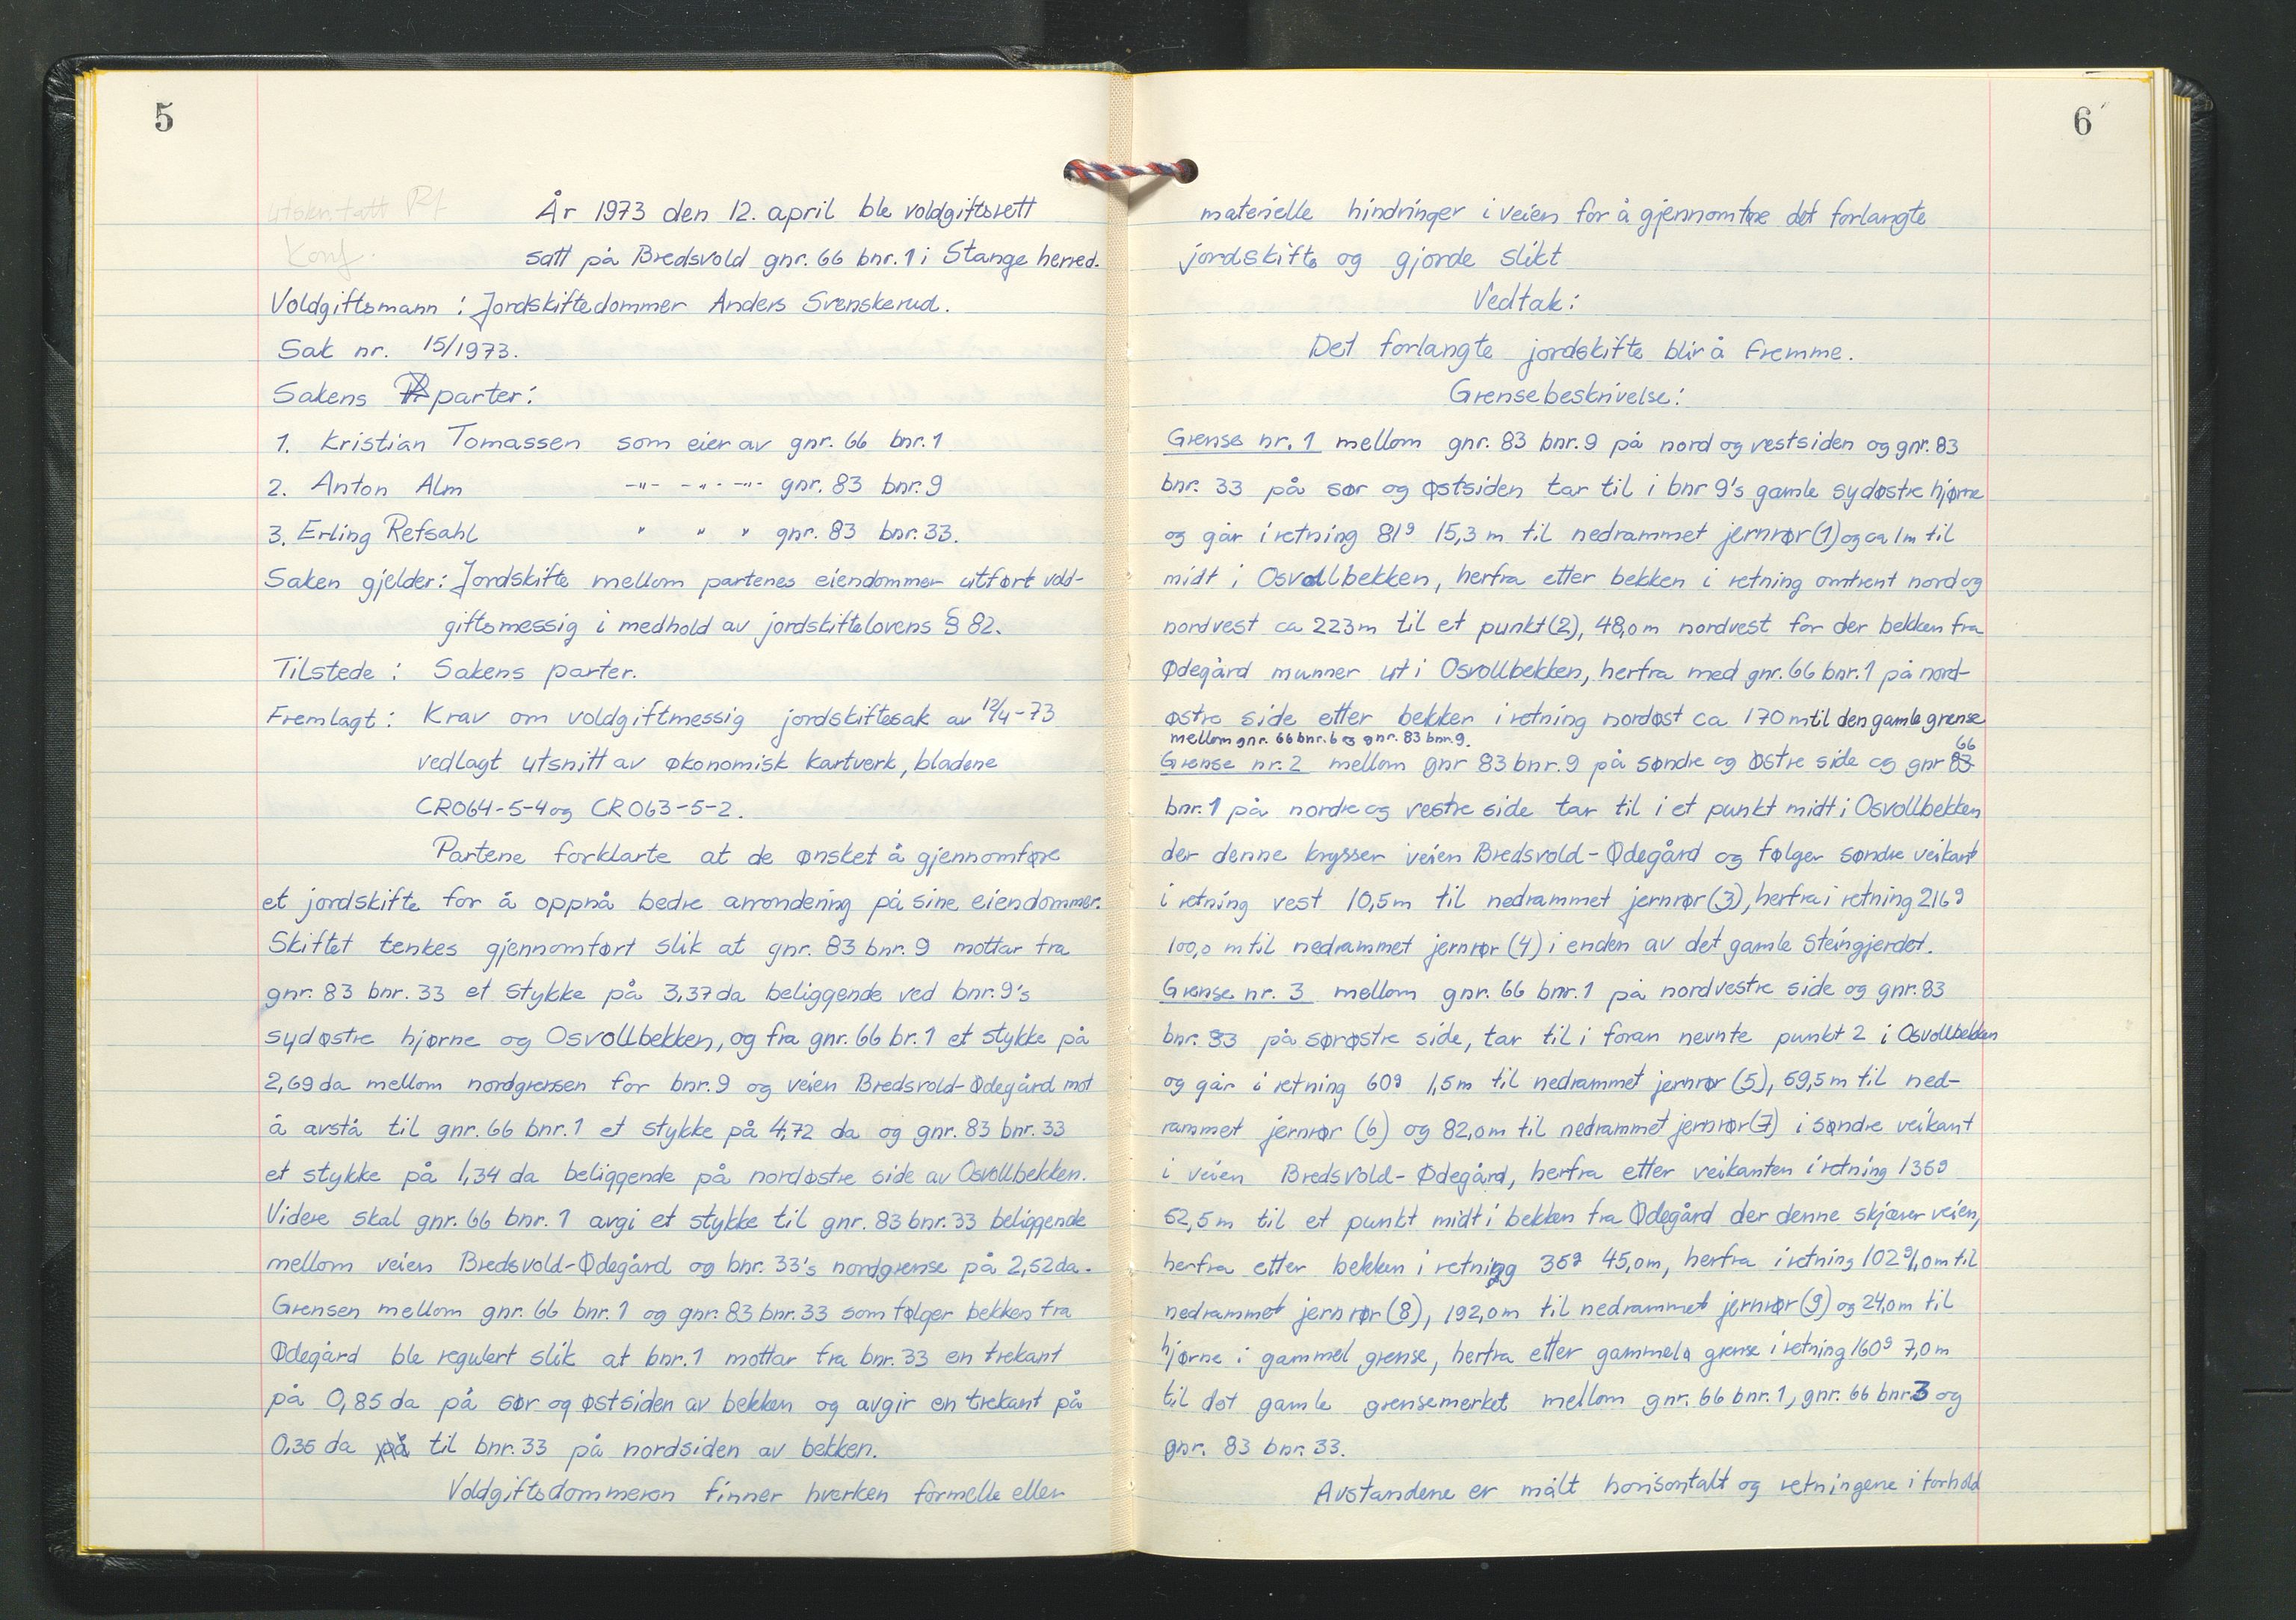 5
Utskrift tatt Rf
Konf.
År 1973 den 12. april ble voldgiftsrett
satt på Bredsvold gnr. 66 bnr. 1 i Stange herred.
Voldgiftsmann : Jordskiftedommer Anders Svenskerud.
Sak nr. 15/1973.
Sakens parter:
1. Kristian Tomassen som eier av gnr. 66 bnr. 1
2. Anton Alm -"- -"- -"- gnr. 83 bnr. 9
3. Erling Refsahl " " " gnr. 83 bnr. 33.
Saken gjelder: Jordskifte mellom partenes eiendommer utført vold-
giftsmessig i medhold av jordskiftelovens § 82.
Tilstede : Sakens parter.
Fremlagt : Krav om voldgiftmessig jordskiftesak av 12/4-73
vedlagt utsnitt av økonomisk kartverk, bladene
CRO64-5-4 og CRO63-5-2.
Partene forklarte at de ønsket å gjennomføre
et jordskifte for å oppnå bedre arrondering på sine eiendommer.
Skiftet tenkes gjennomført slik at gnr. 83 bnr. 9 mottar fra
gnr. 83 bnr. 33 et stykke på 3,37 da beliggende ved bnr. 9's
sydøstre hjørne og Osvollbekken, og fra gnr. 66 br. 1 et stykke på
2,69 da mellom nordgrensen for bnr. 9 og veien Bredsvold-Ødegård mot
å avstå til gnr. 66 bnr. 1 et stykke på 4,72 da og gnr. 83 bnr. 33
et stykke på 1,34 da beliggende på nordøstre side av Osvollbekken.
Videre skal gnr. 66 bnr. 1 avgi et stykke til gnr. 83 bnr. 33 beliggende
mellom veien Bredsvold-Ødegård og bnr. 33's nordgrense på 2,52 da.
Grensen mellom gnr. 66 bnr. 1 og gnr. 83 bnr. 33 som følger bekken fra
Ødegård ble regulert slik at bnr. 1 mottar fra bnr. 33 en trekant
på 0,85 da på sør og østsiden av bekken og avgir en trekant på
0,35 da på til bnr. 33 på nordsiden av bekken.
Voldgiftsdommeren finner hverken formelle eller
6
materielle hindringer i veien for å gjennomføre det forlangte
jordskifte og gjorde slikt
Vedtak:
Det forlangte jordskifte blir å fremme.
Grensebeskrivelse:
Grense nr. 1 mellom gnr. 83 bnr. 9 på nord og vestsiden og gnr. 83
bnr. 33 på sør og østsiden tar til i bnr 9's gamle sydøstre hjørne
og går i retning 81g 15,3 m til nedrammet jernrør (1) og ca 1m til
midt i Osvollbekken, herfra etter bekken i retning omtrent nord og
nordvest ca 223 m til et punkt (2), 48,0 m nordvest for der bekken fra
Ødegård munner ut i Osvollbekken, herfra med gnr. 66 bnr. 1 på nord-
østre side etter bekken i retning nordøst ca 170 m til den gamle grense
mellom gnr. 66 bnr. 6 og gnr. 83 bnr. 9.
Grense nr. 2 mellom gnr 83 bnr. 9 på søndre og østre side og gnr 83 66
bnr. 1 på nordre og vestre side tar til i et punkt midt i Osvollbekken
der denne krysser veien Bredsvold-Ødegård og følger søndre veikant
i retning vest 10,5 m til nedrammet jernrør (3), herfra i retning 216g
100,0 m til nedrammet jernrør (4) i enden av det gamle steingjerdet.
Grense nr. 3 mellom gnr. 66 bnr. 1 på nordvestre side og gnr. 83
bnr. 33 på sørøstre side, tar til i foran nevnte punkt 2 i Osvollbekken
og går i retning 60g 1,5 m til nedrammet jernrør (5), 59,5 m til ned-
rammet jernrør (6) og 82,0 m til nedrammet jernrør (7) i søndre veikant
i veien Bredsvold-Ødegård, herfra etter veikanten i retning 135g
52,5 m til et punkt midt i bekken fra Ødegård der denne skjærer veien,
herfra etter bekken i retning 35g 45,0 m, herfra i retning 102g 1,0 m til
nedrammet jernrør (8), 192,0 m til nedrammet jernrør (9) og 24,0 m til
hjørne i gammel grense, herfra etter gammela grense i retning 160g 7,0 m
til det gamle grensemerket mellom gnr. 66 bnr. 1, gnr. 66 bnr. 3 og
gnr. 83 bnr. 33.
Avstandene er målt horisontalt og retningene i forhold